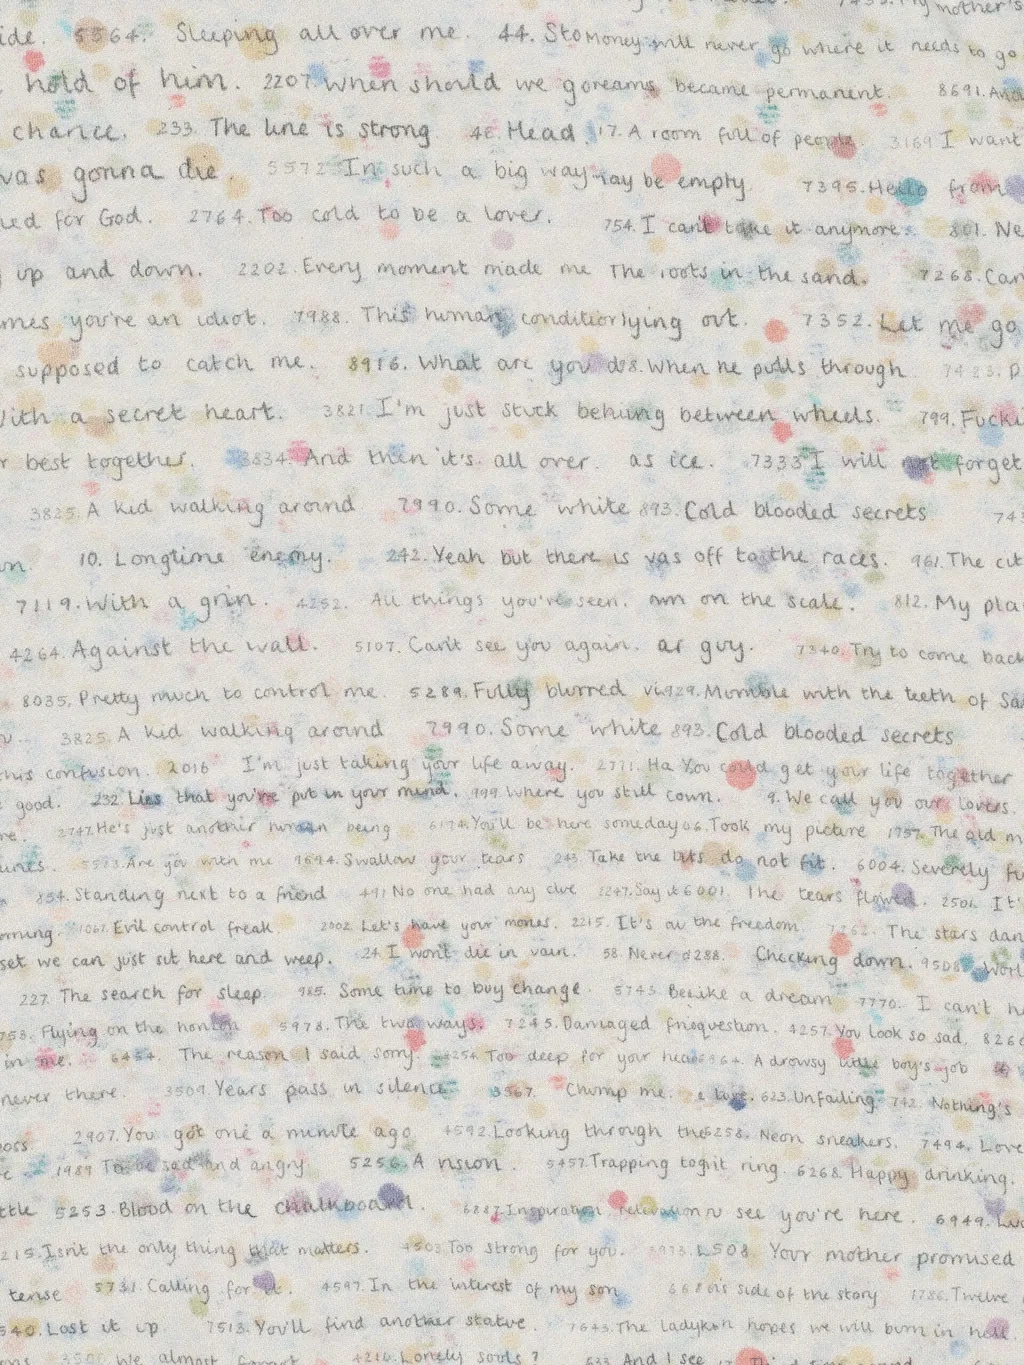 ide. 5564. Sleeping all over me. 44. Sto money will never go where it needs to go
hold of him. 2207. When should we go reams became permanent. 8691. And
chance. 233. The line is strong. 48. Head. 17. A room full of people. 3169 I want
was gonna die. 5572. In such a big way may be empty. 7395. Hello from
ed for God. 2764. Too cold to be a lover. 754. I can't take it anymore. 801. Ne
up and down. 2202. Every moment made me The roots in the sand. 7268. Can
mes you're an idiot. 7988. This human condition lying out. 7352. Let me go
supposed to catch me. 8916. What are you d 8. When he pulls through 7423.
With a secret heart. 3821. I'm just stuck between wheels. 799. Fucki
r best together. 3834. And then it's all over. as ice. 7333 I will not forget
3825. A kid walking around 7990. Some white 893. Cold blooded secrets 743
10. Longtime enemy. 242. Yeah but there is was off to the races. 961. The cit
7119. With a grin. 4252. All things you've seen. own on the scale. 812. My pla
4264. Against the wall. 5107. Can't see you again. ar guy. 7340. Try to come back
8035. Pretty much to control me. 5289. Fully blurred vi 929. Mumble with the teeth of Sa
3825. A kid walking around 7990. Some white 893. Cold blooded secrets
this confusion. 2016 I'm just taking your life away. 2771. Ha You could get your life together
good. 232. Lies that you've put in your mind. 999. Where you still count. 9. We call you our lovers.
re. 2747. He's just another human being 6174. You'll be here someday 06. Took my picture 1757. The old m
5513. Are you with me 9694. Swallow your tears 243. Take the bits do not fit. 6004. Severely fu
854. Standing next to a friend 491. No one had any clue 2247. Say it 6001. The tears flowed. 2501. It'
orning. 1067. Evil control freak. 2002. Let's have your money. 2215. It's all the freedom. 7262. The stars dan
set we can just sit here and weep. 24. I won't die in vain. 58. Never 0288. Checking down. 9508. Worl
227. The search for sleep. 985. Some time to buy change. 5743. Be like a dream 7770. I can't h
753. Flying on the horizon 5978. The two ways. 7245. Damaged question. 4257. You look so sad. 826
in me. 6454. The reason I said sorry. 4254. Too deep for your head 6964. A drowsy little boy's job
never there. 3509. Years pass in silence. 3567. Chump me. e love. 623. Unfailing 742. Nothing's
oss 2907. You got one a minute ago 4592. Looking through the 6258. Neon sneakers. 7494. Love
1989 To be sad and angry. 5256. A vision. 5457. Trapping ring. 6268. Happy drinking.
ttle 5253. Blood on the chalkboard. 6287. Inspiration, relevation see you're here. 6949.
215. Isn't the only thing that matters. 4503. Too strong for you. 508. Your mother promised
tense 5731. Calling for it. 4597. In the interest of my son 668 is side of the story 1786. Twelve
540. Lost it up. 7513. You'll find another statue. 7643. The lady hopes we will burn in hell.
3500. We almost forgot 4216. Lonely souls? 633. And I see